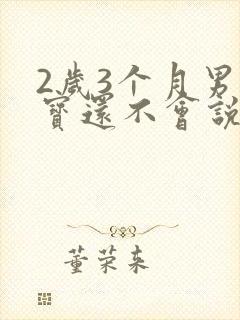 2歲3个月男
寳還不會説
董荣来